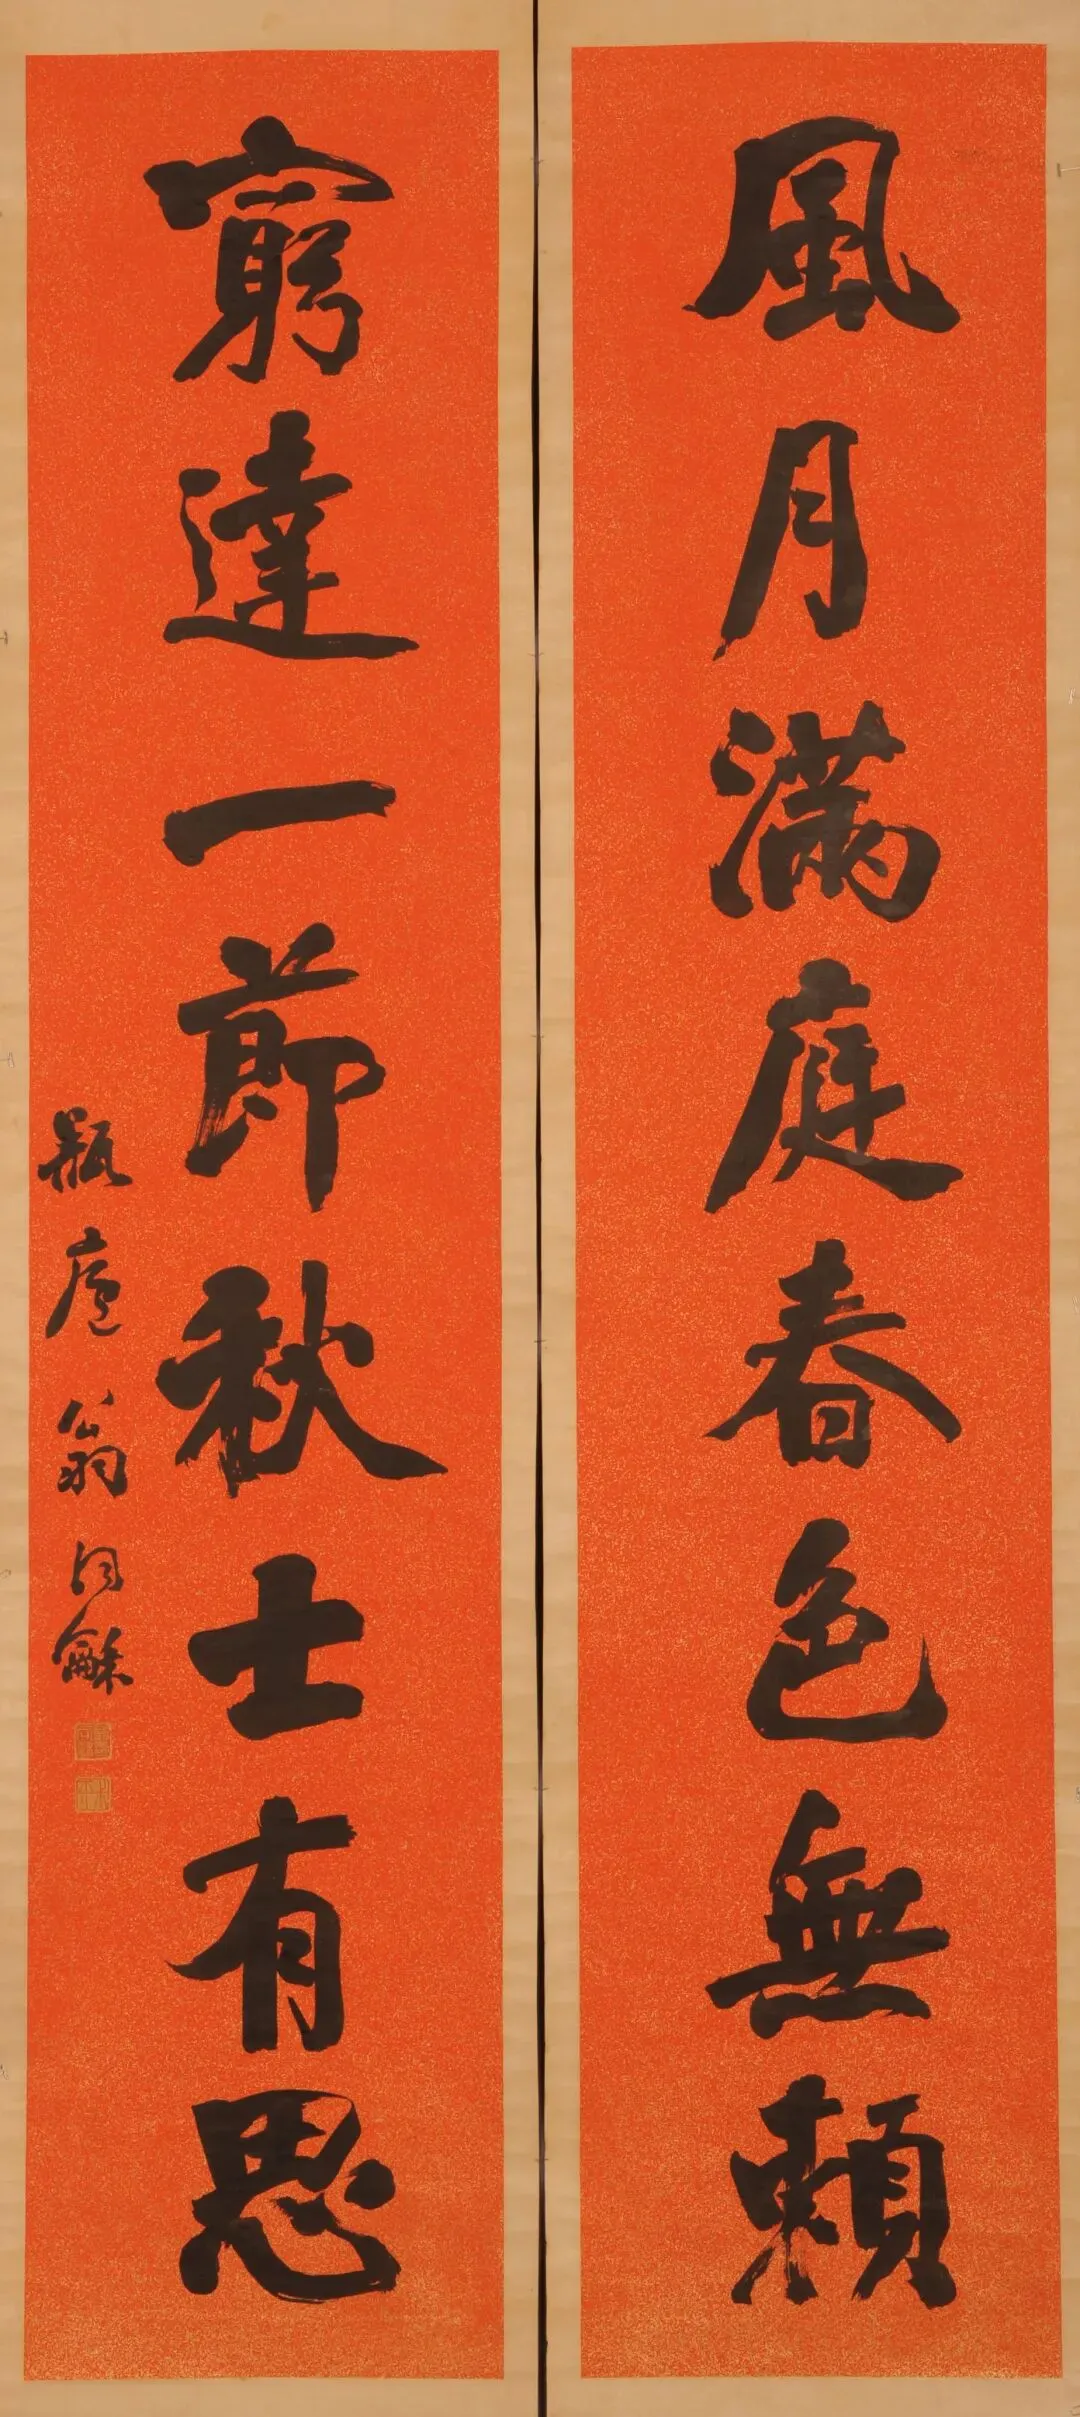 風月滿庭春色無賴
窮達一節秋士有思
瓶廬翁同龢